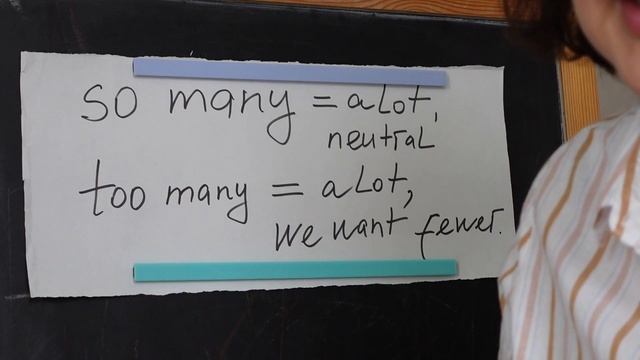 so many = a Lot,
neutral
too many = a Lot,
we want fewer.